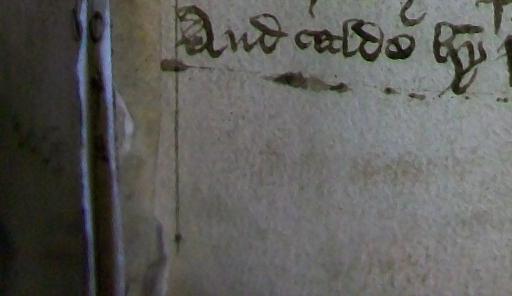 And calde by